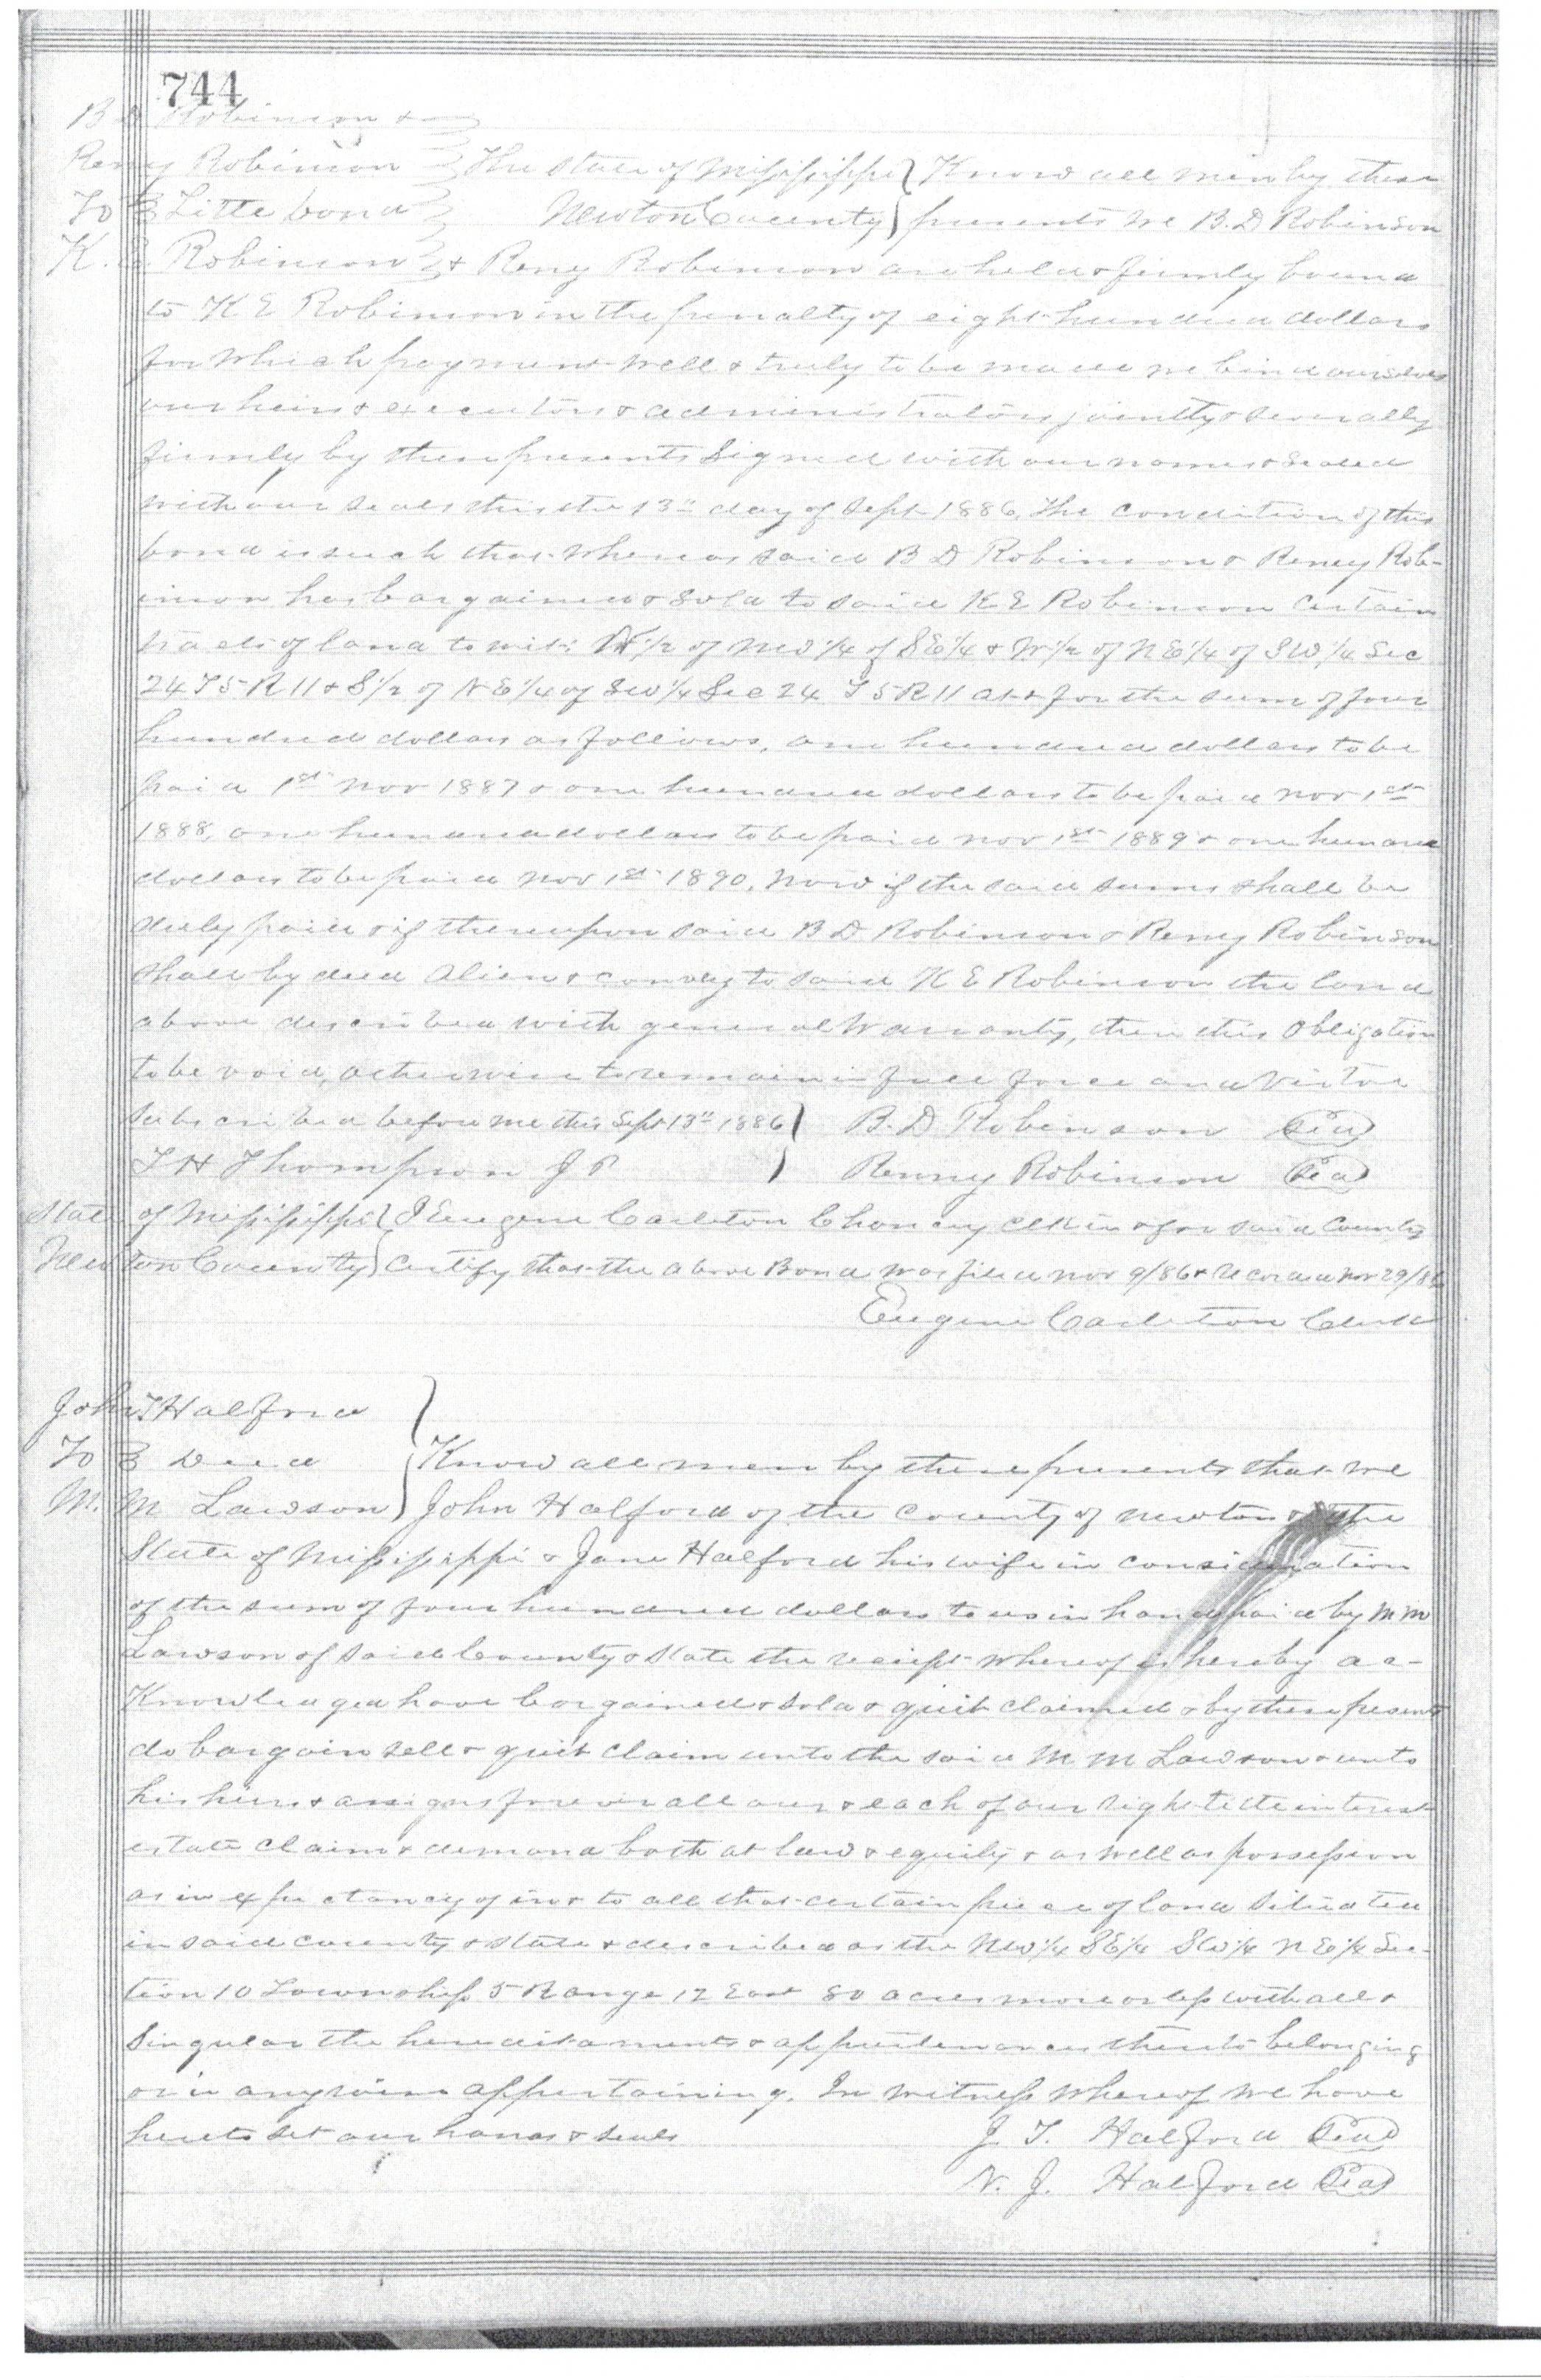 744
B D Robinson &
Reny Robinson } The State of Mississippi } Know all men by these
To } Title bond } Newton County } presents we B. D Robinson
K. E. Robinson } & Reny Robinson are held & firmly bound
to K E Robinson in the penalty of eight hundred dollars
for which payment well & truly to be made we bind ourselves
our heirs & executors & administrators jointly & severally
firmly by these presents Signed with our names & sealed
with our seals this the 13" day of Sept 1886. The condition of this
bond is such that whereas said B D Robinson & Reney Rob-
inson has bargained & sold to said K E Robinson certain
tracts of land to wit: 1/2 of NW 1/4 of SE 1/4 & W 1/2 of NE 1/4 of SW 1/4 Sec
24 T 5 R 11 & S 1/2 of NE 1/4 of SW 1/4 Sec 24 T 5 R 11 at & for the sum of four
hundred dollars as follows, one hundred dollars to be
paid 1st Nov 1887 & one hundred dollars to be paid Nov 1st
1888, one hundred dollars to be paid Nov 1st 1889 & one hundred
dollars to be paid Nov 1st 1890. Now if the said sums shall be
duly paid & if thereupon said B D Robinson & Reny Robinson
shall by deed Alien & convey to said K E Robinson the land
above described with general Warranty, then this Obligation
to be void, otherwise to remain in full force and Virtue
Subscribed before me this Sept 13" 1886 } B. D Robinson Seal
T H Thompson J P } Renny Robinson Seal
State of Mississippi } I Eugene Carleton Chancery Clk in & for said County
Newton County } Certify that the above Bond was filed Nov 9/86 & Recorded Nov 29/86
Eugene Carleton Clerk
John T Halford }
To } Deed } Know all men by these presents that we
M. M Lawson } John Halford of the County of Newton & the
State of Mississippi & Jane Halford his wife in consideration
of the sum of four hundred dollars to us in hand paid by M M
Lawson of said County & State the receipt whereof is hereby ac-
Knowledged have bargained & sold & quit claimed & by these presents
do bargain sell & quit claim unto the said M M Lawson & unto
his heirs & assigns forever all our & each of our right title interest
estate claim & demand both at law & equity & as well as possession
as in expectancy of in & to all that certain piece of land situated
in said county & state & described as the NW 1/4 SE 1/4 SW 1/4 N E 1/4 Sec-
tion 10 Township 5 Range 12 East 80 acres more or less with all &
Singular the hereditaments & appurtenances thereto belonging
or in anywise appertaining. In witness whereof we have
hereto set our hands & seals J. T. Halford Seal
N. J. Halford Seal